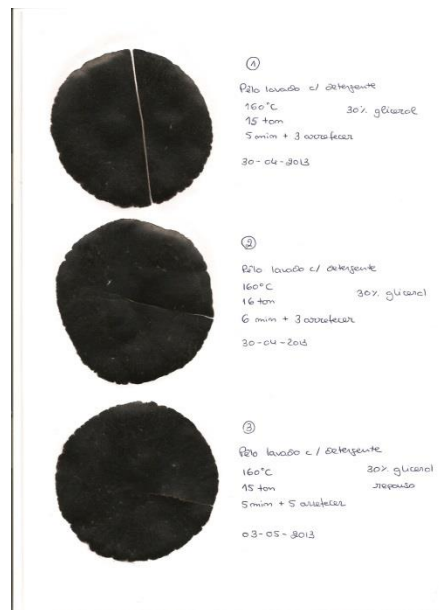 ①
Pêlo lavado c/ detergente
160°C 30% glicerol
15 ton
5 min + 3 arrefecer
30-04-2013
②
Pêlo lavado c/ detergente
160°C 30% glicerol
16 ton
6 min + 3 arrefecer
30-04-2013
③
Pêlo lavado c/ detergente
160°C 30% glicerol
15 ton repouso
5 min + 5 arrefecer
03-05-2013